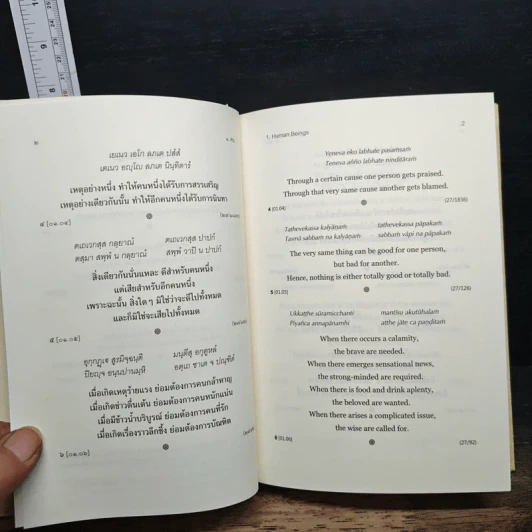 ๒
๑. คน
เยเนว เอโก ลภเต ปสํสํ
เตเนว อญฺโญ ลภเต นินฺทิตารํ
เหตุอย่างหนึ่ง ทำให้คนหนึ่งได้รับการสรรเสริญ
เหตุอย่างเดียวกันนั้น ทำให้อีกคนหนึ่งได้รับการนินทา
๔ [๐๑.๐๔]
ตเถเวกสฺส กลฺยาณํ ตเถเวกสฺส ปาปกํ
ตสฺมา สพฺพํ น กลฺยาณํ สพฺพํ วาปิ น ปาปกํ
สิ่งเดียวกันนั่นแหละ ดีสำหรับคนหนึ่ง
แต่เสียสำหรับอีกคนหนึ่ง
เพราะฉะนั้น สิ่งใดๆ มิใช่ว่าจะดีไปทั้งหมด
และก็มิใช่จะเสียไปทั้งหมด
๕ [๐๑.๐๕]
อุกฺกฏฺเฐ สูรมิจฺฉนฺติ มนฺตีสุ อกุตูหลํ
ปิยญฺจ อนฺนปานมฺหิ อตฺเถ ชาเต จ ปณฺฑิตํ
เมื่อเกิดเหตุร้ายแรง ย่อมต้องการคนกล้าหาญ
เมื่อเกิดข่าวตื่นเต้น ย่อมต้องการคนหนักแน่น
เมื่อมีข้าวน้ำบริบูรณ์ ย่อมต้องการคนที่รัก
เมื่อเกิดเรื่องราวลึกซึ้ง ย่อมต้องการบัณฑิต
๖ [๐๑.๐๖]
1. Human Beings
2
Yeneva eko labhate pasaṁsaṁ
Teneva añño labhate ninditāraṁ
Through a certain cause one person gets praised.
Through that very same cause another gets blamed.
4 (01.04) (27/1836)
Tathevekassa kalyāṇaṁ tathevekassa pāpakaṁ
Tasmā sabbaṁ na kalyāṇaṁ sabbaṁ vāpi na pāpakaṁ
The very same thing can be good for one person,
but bad for another.
Hence, nothing is either totally good or totally bad.
5 (01.05) (27/126)
Ukkaṭṭhe sūramicchanti mantīsu akutūhalaṁ
Piyañca annapānamhi atthe jāte ca paṇḍitaṁ
When there occurs a calamity,
the brave are needed.
When there emerges sensational news,
the strong-minded are required.
When there is food and drink aplenty,
the beloved are wanted.
When there arises a complicated issue,
the wise are called for.
6 (01.06) (27/92)